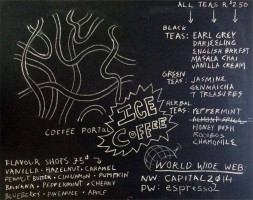 ALL TEAS R12.50
BLACK
TEAS: EARL GREY
DARJEELING
ENGLISH BRKFST
MASALA CHAI
VANILLA CREAM
GREEN
TEAS: JASMINE
GENMAICHA
7 TREASURES
HERBAL
TEAS: PEPPERMINT
HONEY BUSH
ROOIBOS
CHAMOMILE
ICE
COFFEE
COFFEE PORTAL
FLAVOUR SHOTS
VANILLA · HAZELNUT · CARAMEL
PEANUT BUTTER · CINNAMON · PUMPKIN
BANANA · PEPPERMINT · CHERRY
BLUEBERRY · APPLE
WORLD WIDE WEB
NW: CAPITAL2014
PW: espresso2